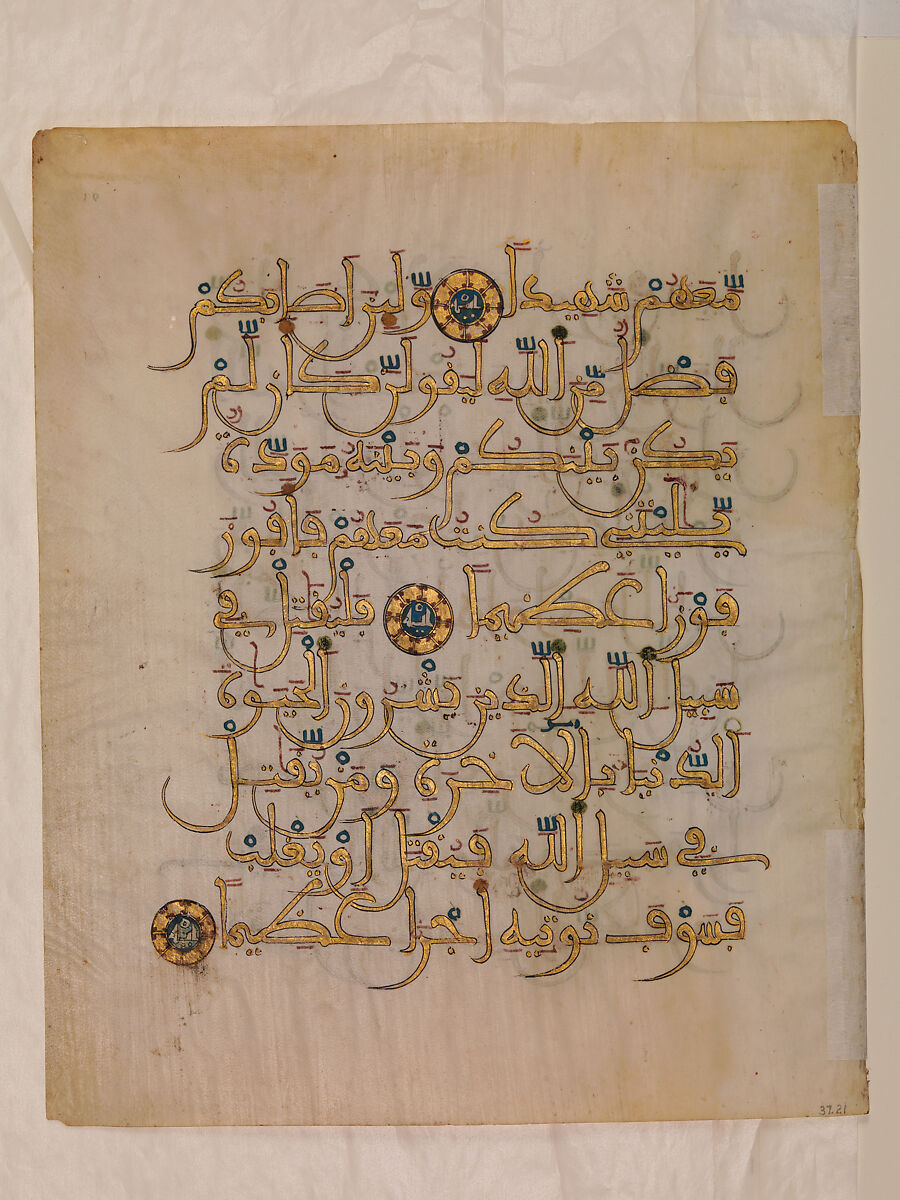 مَّعَهُمْ شَهِيدًا ۝ وَلَئِنْ أَصَٰبَكُمْ
فَضْلٌ مِّنَ اَ۬للَّهِ لَيَقُولَنَّ كَأَن لَّمْ
يَكُنۢ بَيْنَكُمْ وَبَيْنَهُۥ مَوَدَّةٌ
يَّٰلَيْتَنِي كُنتُ مَعَهُمْ فَأَفُوزَ
فَوْزًا عَظِيمًا ۝ فَلْيُقَٰتِلْ فِي
سَبِيلِ اِ۬للَّهِ اِ۬لذِينَ يَشْرُونَ اَ۬لْحَيَوٰةَ
اَ۬لدُّنْيَا بِالَاخِرَةِ وَمَنْ يُّقَٰتِلْ
فِي سَبِيلِ اِ۬للَّهِ فَيُقْتَلَ أَوْ يَغْلِبْ
فَسَوْفَ نُوتِيهِ أَجْرًا عَظِيمًا ۝
37.21